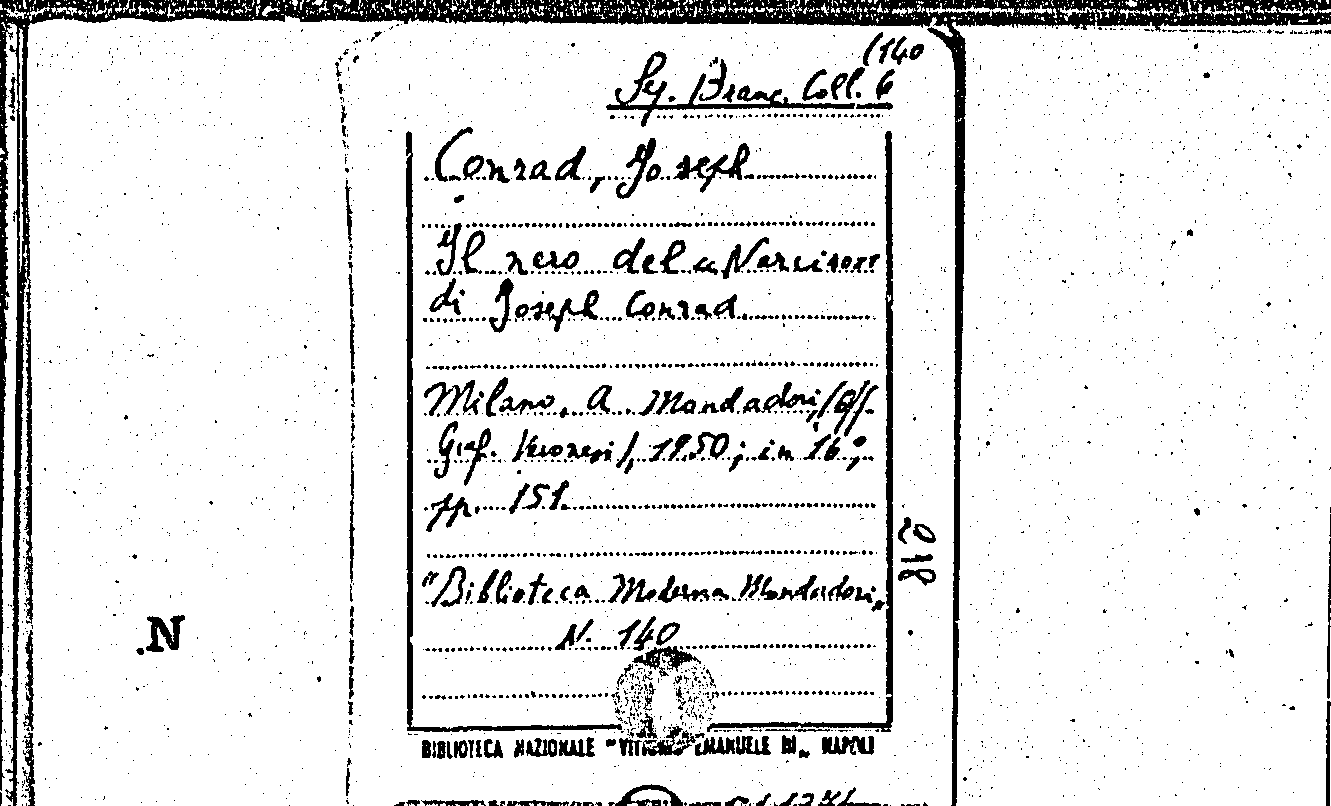 (140
Sy. Branc. Coll. 6
Conrad, Joseph
Il nero del "Narciso"
di Joseph Conrad.
Milano, A. Mondadori, (Off.
Graf. Veronesi), 1950; in 16°;
pp. 151.
218
"Biblioteca Moderna Mondadori"
N. 140
.N
BIBLIOTECA NAZIONALE "VITTORIO EMANUELE III" NAPOLI